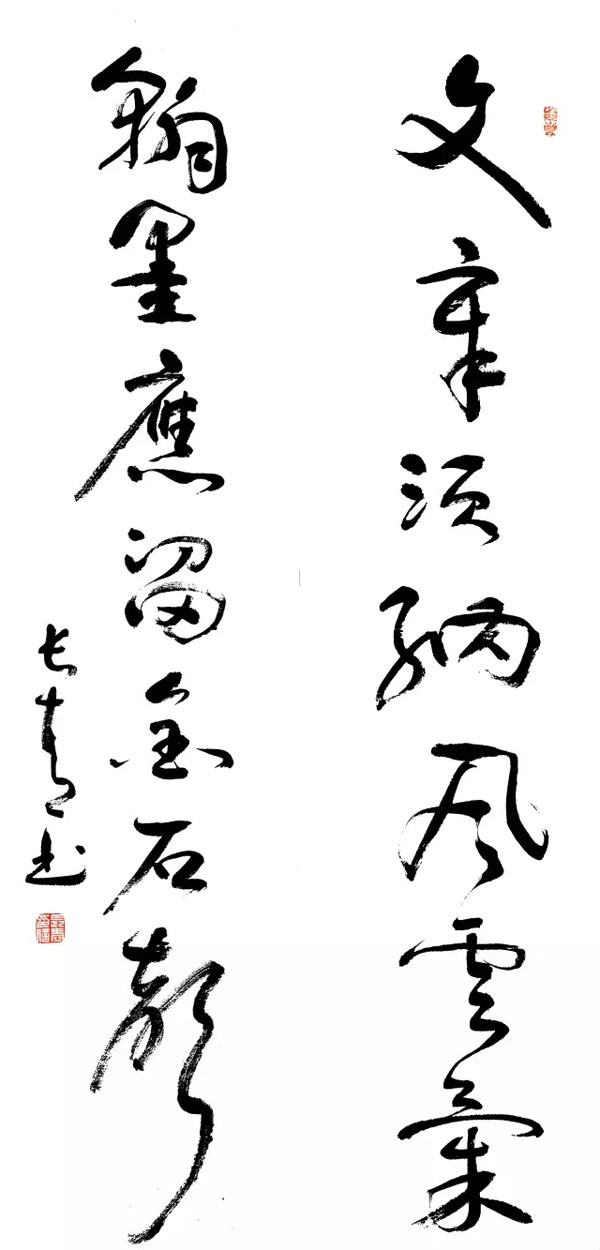 文章须纳风云气
翰墨應留金石聲
长青书